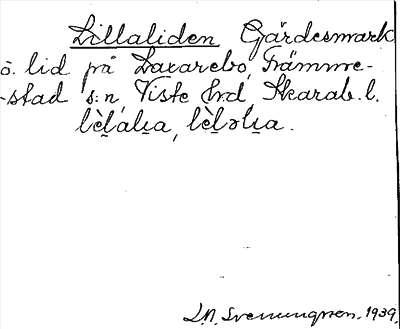 Lillaliden Gärdesmark
å lid på Laxarebo, Främme-
-stad s:n, Viste hrd, Skarab. l.
L. N. Svenungsson. 1939.